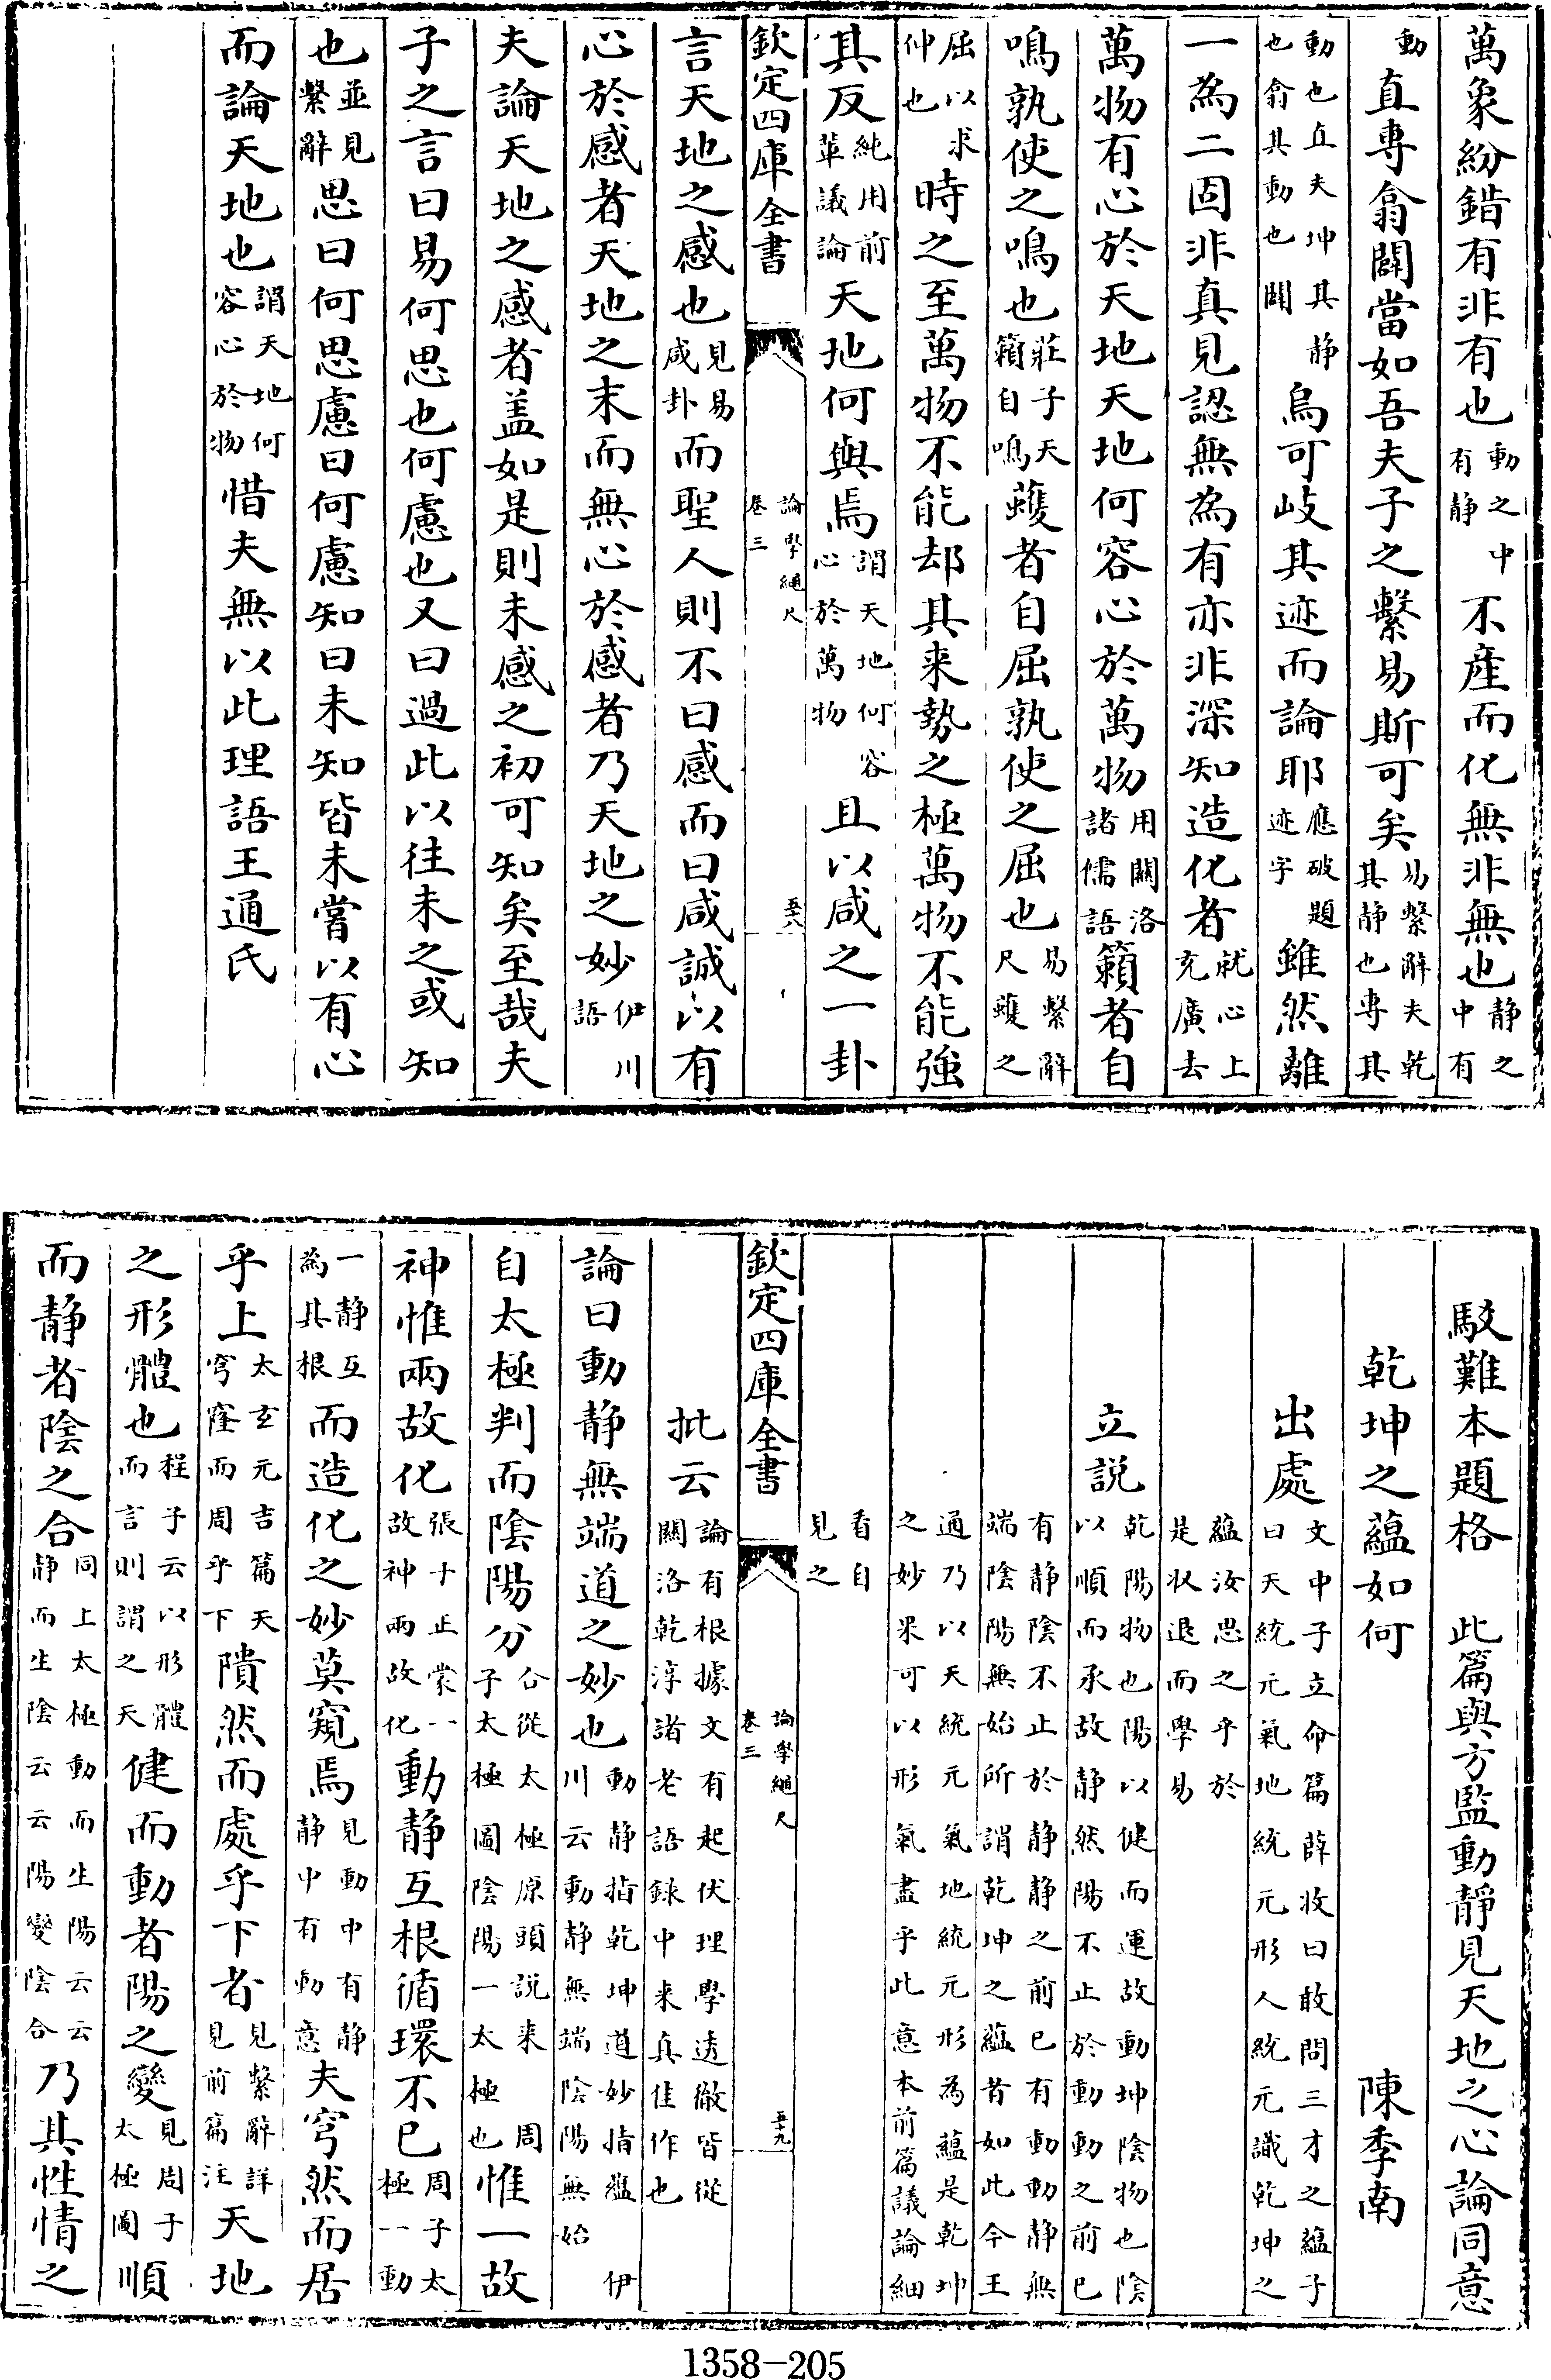 萬象紛錯有非有也動之中有静不產而化無非無也静之中有
動直專翕闢當如吾夫子之繫易斯可矣易繫辭夫乾其静也專其
動也直夫坤其静也翕其動也闢烏可岐其迹而論耶應破題迹字雖然離
一為二固非真見認無為有亦非深知造化者就心上充廣去
萬物有心於天地天地何容心於萬物用關洛諸儒語籟者自
鳴孰使之鳴也莊子天籟自鳴蠖者自屈孰使之屈也易繫辭尺蠖之
屈以求伸也時之至萬物不能却其来勢之極萬物不能強
其反純用前軰議論天地何與焉謂天地何容心於萬物且以咸之一卦
欽定四庫全書 論學繩尺 卷三 五十八
言天地之感也見易咸卦而聖人則不曰感而曰咸誠以有
心於感者天地之末而無心於感者乃天地之妙伊川語
夫論天地之感者盖如是則未感之初可知矣至哉夫
子之言曰易何思也何慮也又曰過此以往未之或知
也並見繫辭思曰何思慮曰何慮知曰未知皆未嘗以有心
而論天地也謂天地何容心於物惜夫無以此理語王通氏
駁難本題格 此篇與方監動静見天地之心論同意
乾坤之蘊如何 陳季南
出處文中子立命篇薛收曰敢問三才之蘊子曰天統元氣地統元形人統元識乾坤之
蘊汝思之乎於是收退而學易
立説乾陽物也陽以健而運故動坤陰物也陰以順而承故静然陽不止於動動之前已
有静陰不止於静静之前已有動動静無端陰陽無始所謂乾坤之蘊者如此今王
通乃以天統元氣地統元形為蘊是乾坤之妙果可以形氣盡乎此意本前篇議論細
看自見之
欽定四庫全書 論學繩尺 卷三 五十九
批云論有根據文有起伏理學透徹皆從關洛乾淳諸老語録中来真佳作也
論曰動静無端道之妙也動静指乾坤道妙指蘊伊川云動静無端陰陽無始
自太極判而陰陽分合從太極原頭説来周子太極圖陰陽一太極也惟一故
神惟兩故化張子正䝉一故神兩故化動静互根循環不已周子太極一動
一静互為其根而造化之妙莫窺焉見動中有静静中有動意夫穹然而居
乎上太玄元吉篇天穹窿而周乎下隤然而處乎下者見繫辭詳見前篇注天地
之形體也程子云以形體而言則謂之天健而動者陽之變見周子太極圖順
而静者陰之合同上太極動而生陽云云静而生陰云云陽變陰合乃其性情之
1358-205